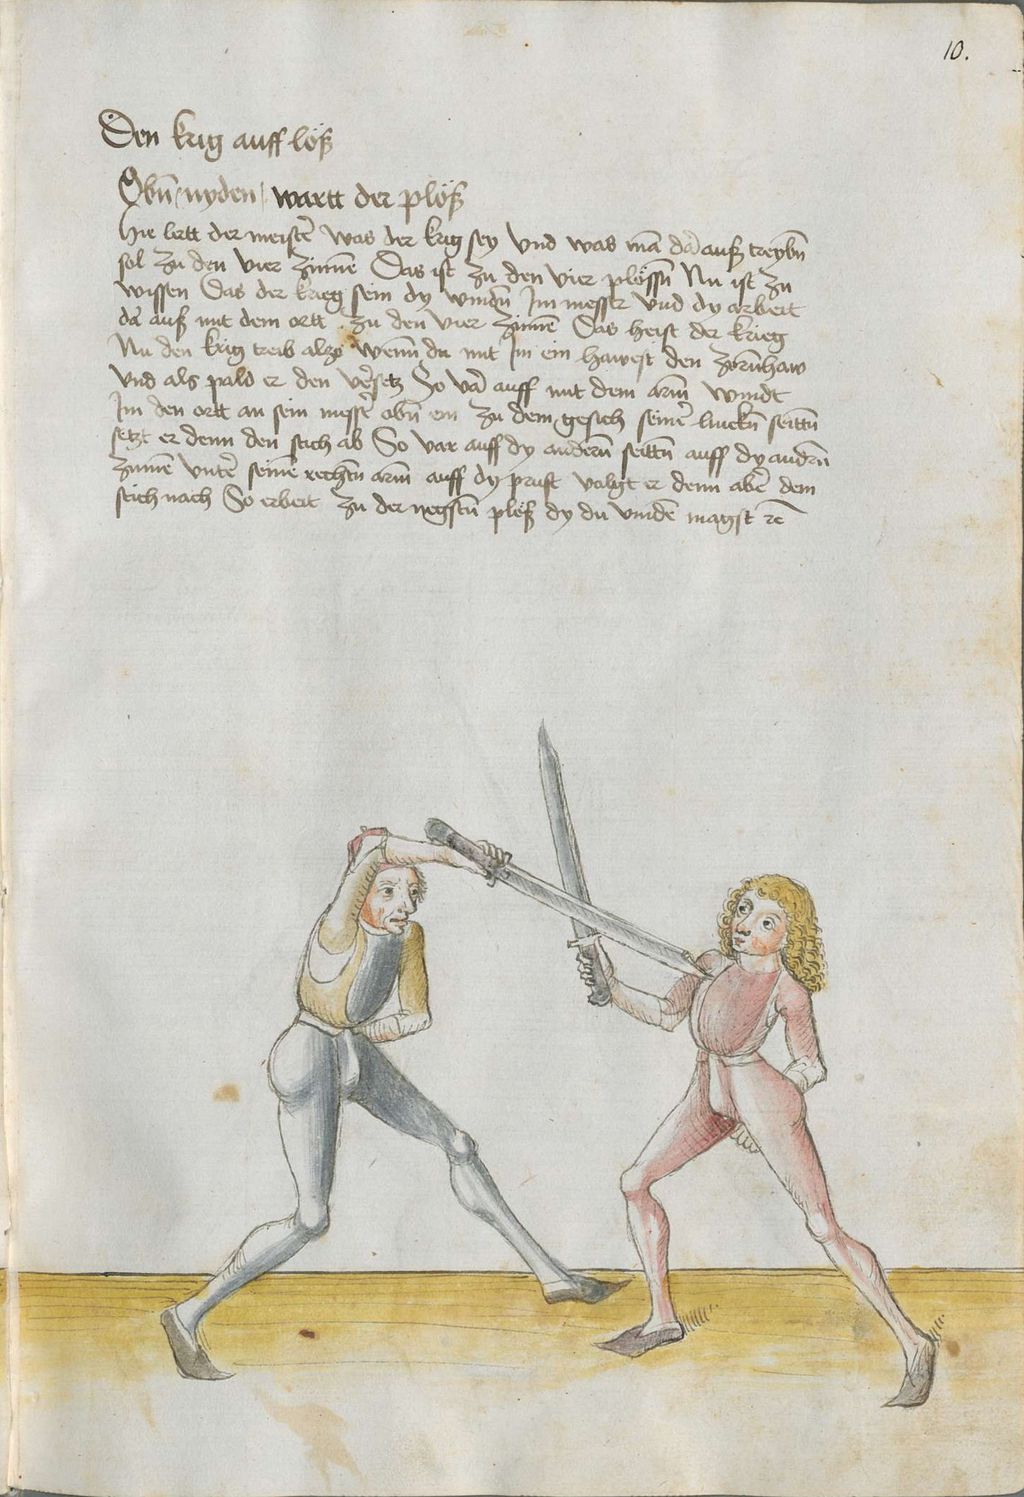 10.
Den krig auff löß
Obn̄ / nyden / wartt der plöß
Hie lertt der meistˀ was der krig sey vnd was mā dar̄ auß treybn̄
sol zu den vier zinnē Das ist zu den vier plössn̄ Nu ist zu
wissen Das der krieg sein dy windn̄ Im messer vnd dy arbeit
dar̄ auß mit dem ortt zu den vier zinnē Das heist der krieg
Nu den krig treib also Wenn du mit Im ein hawest den zornhaw
vnd als pald er den vˀsetz So var̄ auff mit dem arm̄ windt
Im den ortt an sein messˀ obn̄ ein zu dem gesich seinˀ linckn̄ seittn̄
setzt er denn den stich ab So var auff dy andern̄ seittn̄ auff dy andrn̄
zinnē vntˀ seinē rechtn̄ arm̄ auff dy prust volgt er denn abˀ dem
stich nach So erbeit zu der negstn̄ plöß dy du vindē magst rc̄